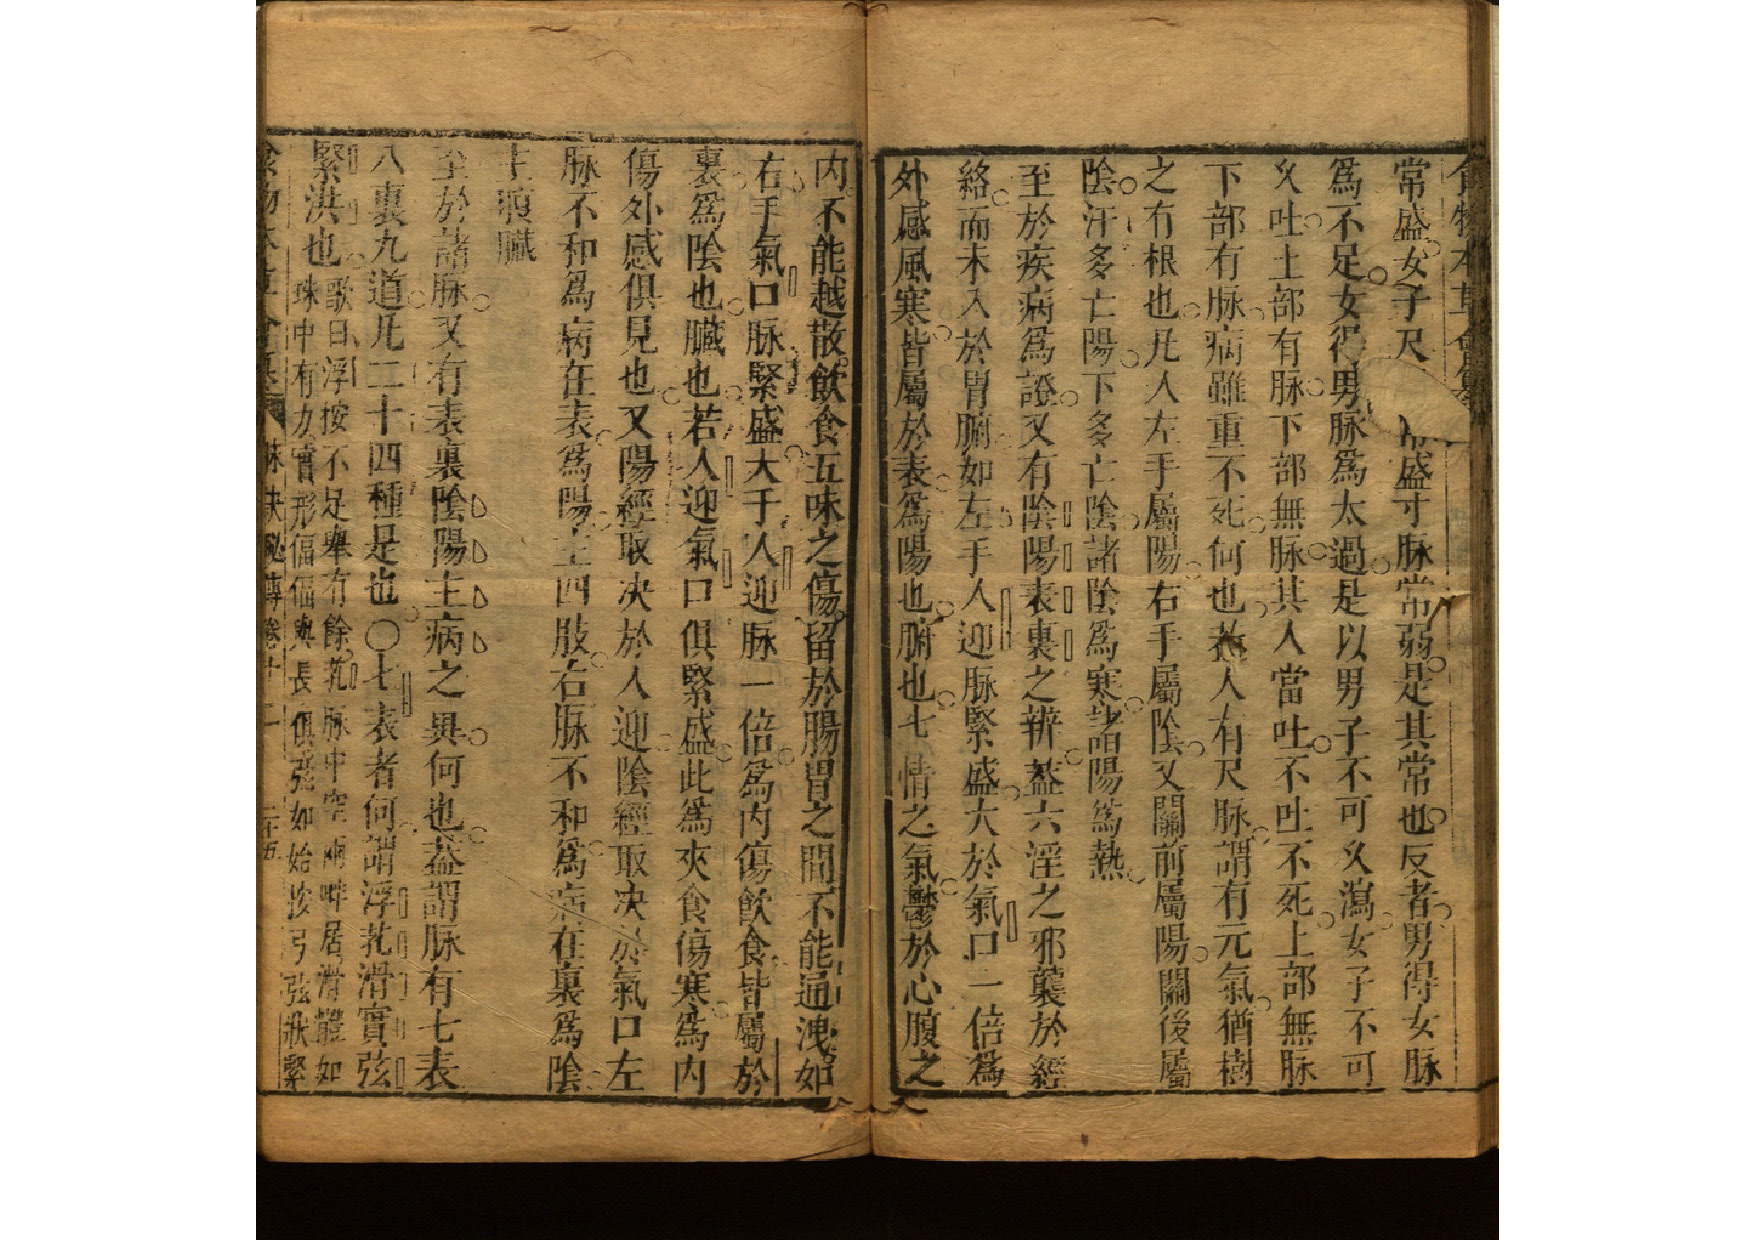 食物本草會纂
常盛女子尺 常盛寸脉常弱是其常也反者男得女脉
爲不足女得男脉爲太過是以男子不可久瀉女子不可
久吐上部有脉下部無脉其人當吐不吐不死上部無脉
下部有脉病雖重不死何也葢人有尺脉謂有元氣猶樹
之有根也凡人左手屬陽右手屬陰又關前屬陽關後屬
陰汗多亡陽下多亡陰諸陰爲寒諸陽爲熱
至於疾病爲證又有陰陽表裏之辨葢六淫之邪襲於經
絡而未入於胃腑如左手人迎脉緊盛大於氣口一倍爲
外感風寒皆屬於表爲陽也腑也七情之氣鬱於心腹之
内不能越散飲食五味之傷留於腸胃之間不能通洩如
右手氣口脉緊盛大于人迎脉一倍爲内傷飲食皆屬於
裏爲陰也臟也若人迎氣口俱緊盛此爲夾食傷寒爲内
傷外感俱見也又陽經取决於人迎陰經取决於氣口左
脉不和爲病在表爲陽主四肢右脉不和爲病在裏爲陰
主腹臟
至於諸脉又有表裏陰陽主病之異何也葢謂脉有七表
八裏九道凡二十四種是也〇七表者何謂浮芤滑實弦
緊洪也歌曰浮按不足舉有餘芤脉中空兩畔居滑體如
珠中有力實形偪偪與長俱弦如始按弓弦狀緊
食物本草會纂 脉訣秘傳卷十二 二十五